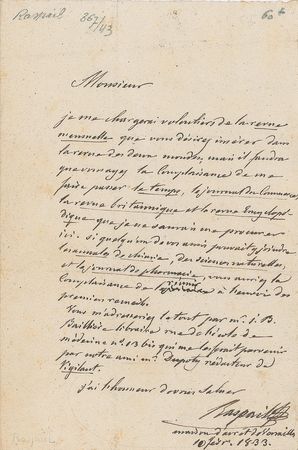 Raspail 367/43
60 +
Monsieur
je me chargerai volontiers de la revue
mensuelle que vous désirez insérer dans
la revue des deux mondes, mais il faudra
que vous ayez la Complaisance de me
faire passer le temps, le journal du Commerce,
la revue britannique et la revue Encyclopé-
dique que je ne saurais me procurer
ici. si quelqu'un de vos amis pouvait y joindre
les annales de chimie, des sciences naturelles,
et le journal de pharmacie, vous auriez la
Complaisance de à l'envoi des
premiers remerciements
Vous m'adresseriez le tout par mr. J. B.
Baillière libraire rue de l'école de
médecine n°. 13 bis qui me les ferait parvenir
par notre ami mr. Dupoty rédacteur du
Vigilant.
j'ai l'honneur de vous saluer
Raspail
maison d'arrêt de Versailles
10 févr. 1833.
Raspail